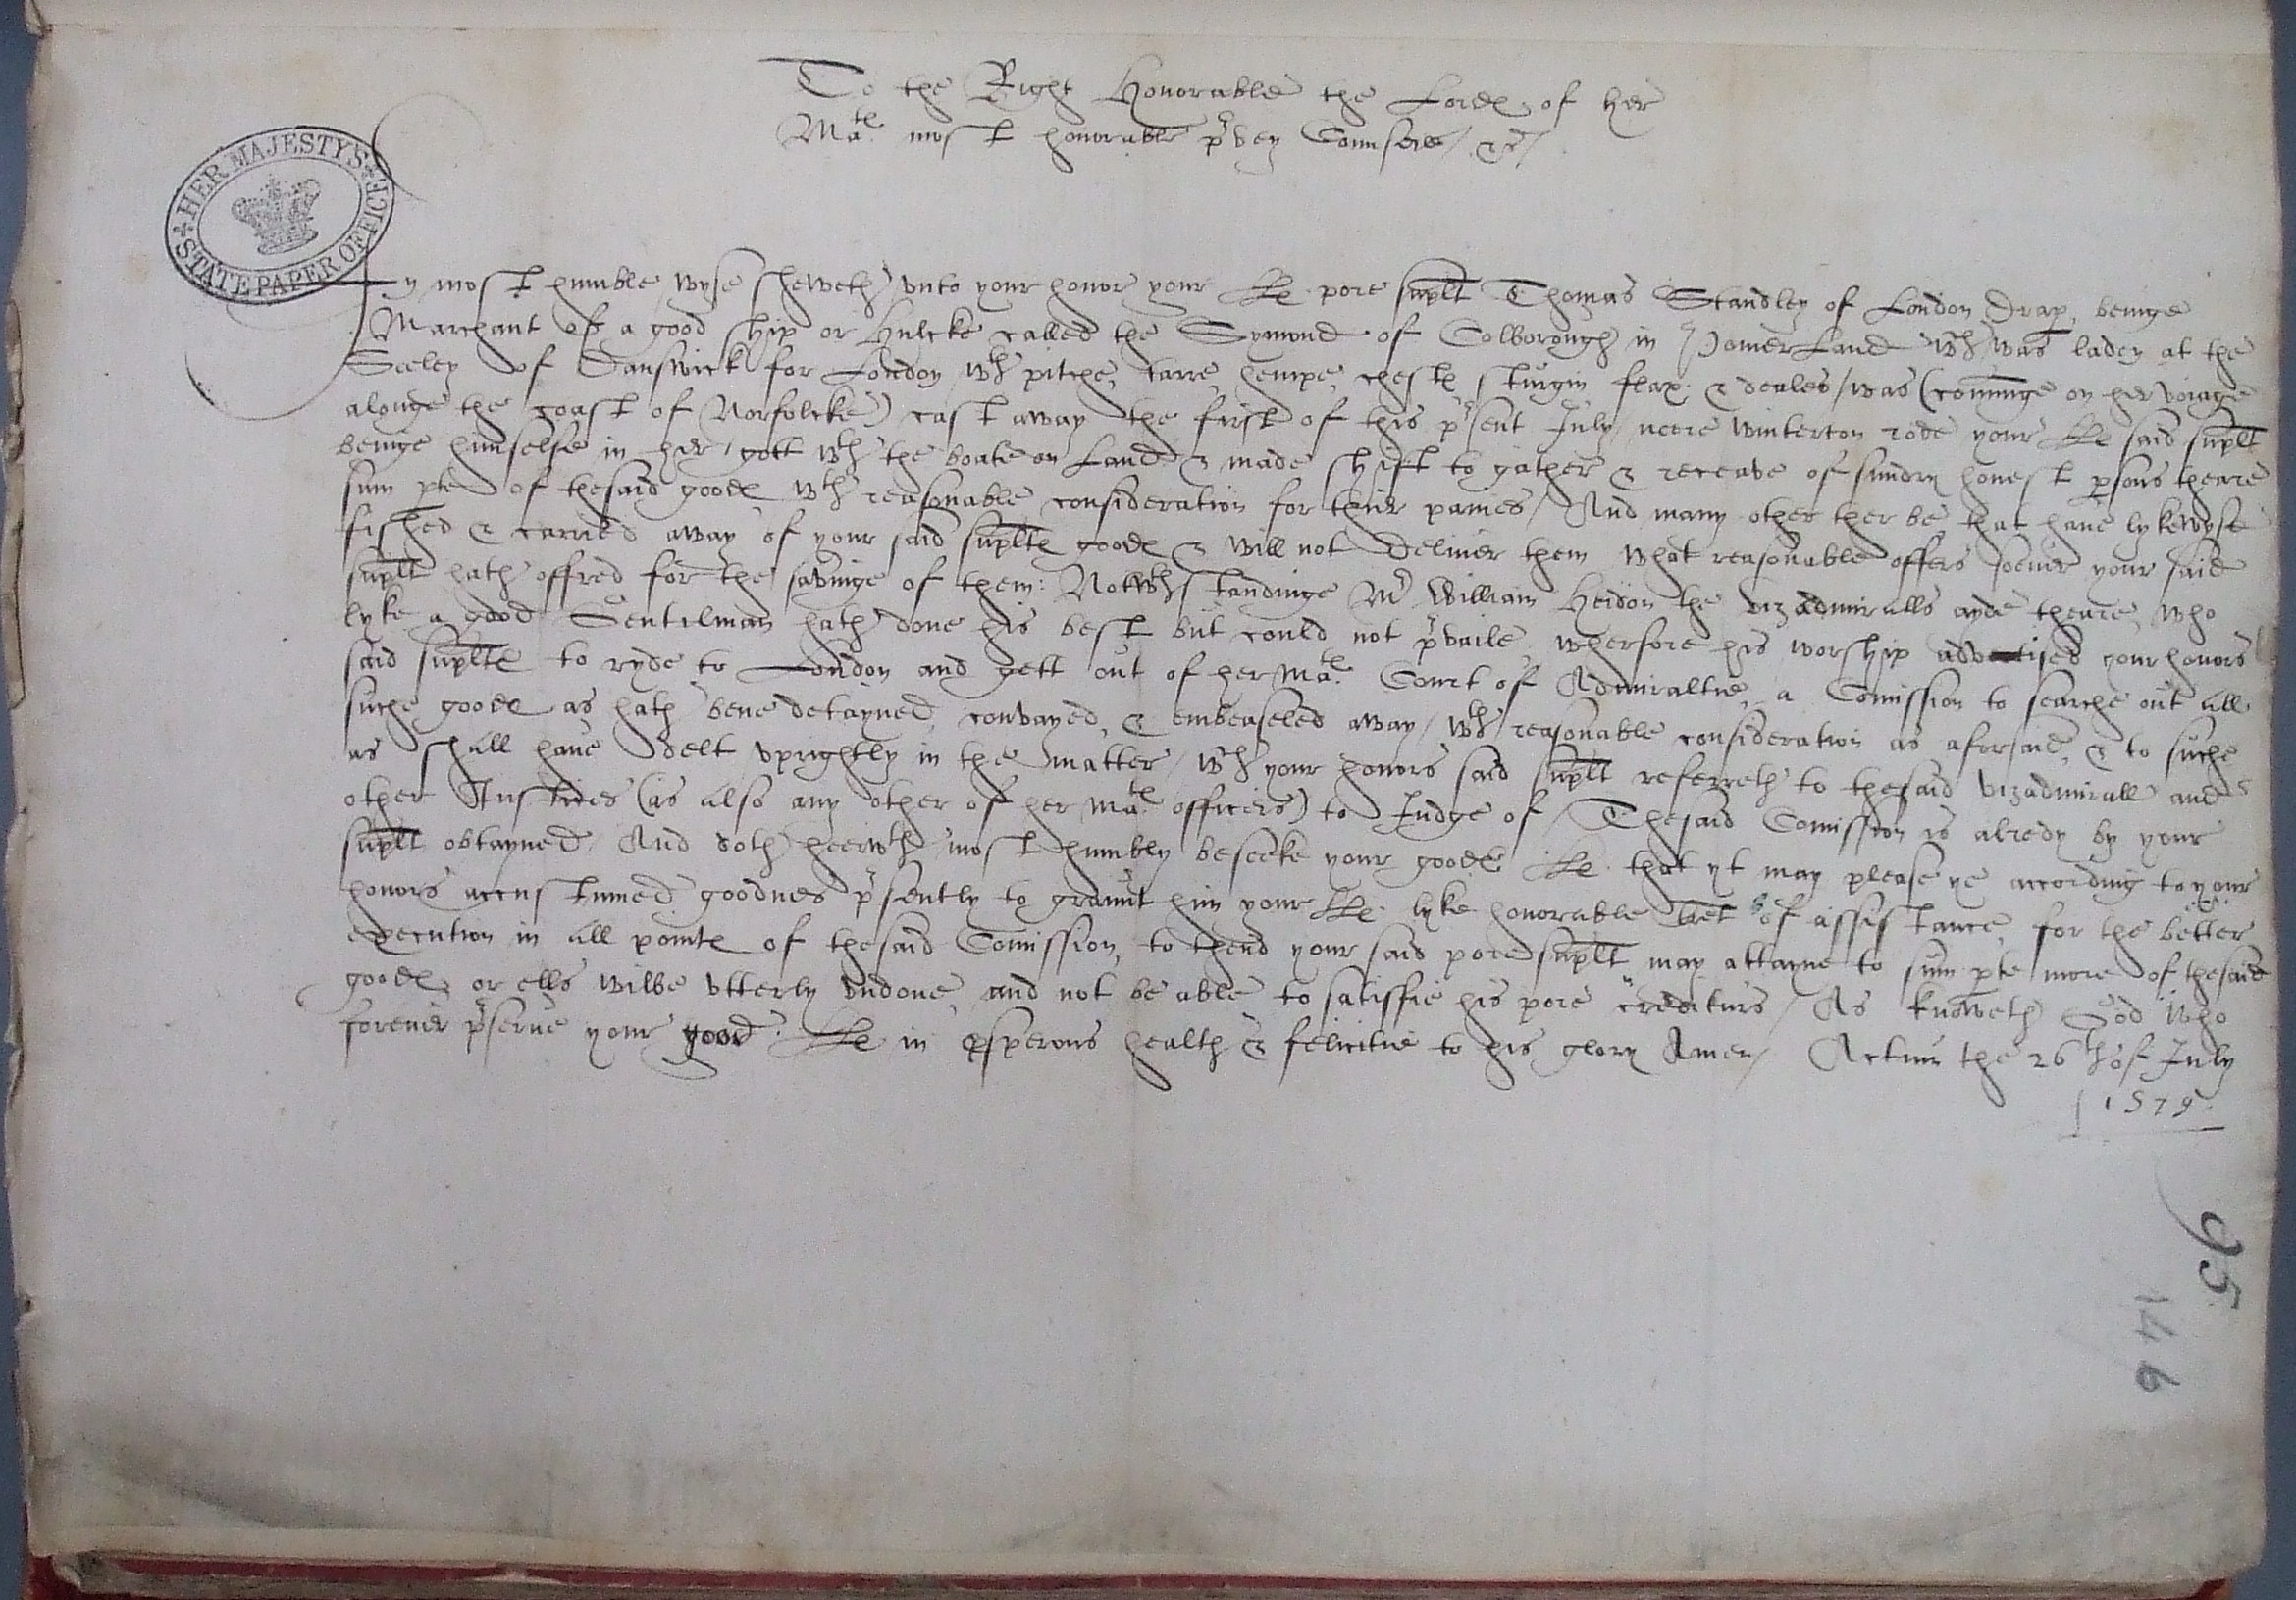 To the Right Honorable the Lordes of her
Mates most honorable prvey Counsere / &c /
HER MAJESTY'S STATE PAPER OFFICE
In most humble wyse sheweth vnto your honor your LLs pore suplt Thomas Standley of London Drap, beinge
Marchant of a good ship or Hulcke called the Symond of Colborough in PomerLand wch was laden at the
Seelez of Danswick for London wth pitche, tarre, hempe, chestes sturgin flax & deales / was (comminge on her voiage
alonge the coast of Norfolcke) cast away the first of this prsent July, neere Winterton rode your LLs said suplt
beinge himselfe in her / gott wth the boate on Land & made shift to gather & receave of sundry honest psons theare
sum pte of thesaid goodes wth reasonable consideration for their paines / And many other ther be that have lykewyse
fished & carried away of your said suplts goodes & will not deliver them what reasonable offers soever your said
suplt hath offred for the savinge of them: Notwthstandinge Mr William Heidon the vizadmiralls ayde theare, who
lyke a good Gentilman hath done his best but could not prvaile, wherfore his worship advertised your honors
said suplte to ryde to London and gett out of her Mates Court of Admiraltie, a Comission to searche out all
suche goodes as hath bene detayned, convayed, & embeaseled away / wth reasonable consideration as aforsaid, & to suche
as shall have delt vprightly in the matter / wch your honors said suplt referreth to thesaid vizadmirall and
other Justices (as also any other of her Mates officers) to Judge of / Thesaid Comission is alredy by your
suplt obtayned / And doth heerwth most humbly beseeke your goodes LLs that yt may please ye according to your
honors accustumed goodnes prsently to graunt him your LLs lyke honorable Lres of assistance, for the better
execution in all pointes of thesaid Comission, to thend your said pore suplt may attayne to sum pte more of thesaid
goodes, or ells wilbe vtterly vndone, and not be able to satisfie his pore crediturs / As knoweth God who
forever prserve your good LLs in psperous health & felicitie to his glory Amen / Actum the 26th of July
1579
56
146